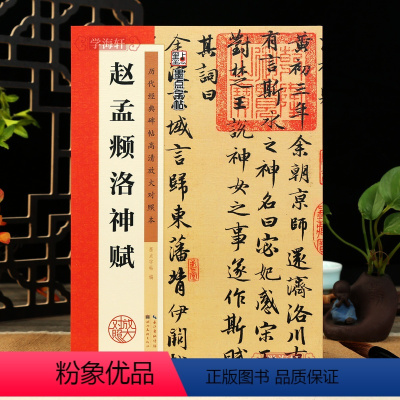 学海轩
墨点字帖
历代经典碑帖高清放大对照本
赵孟𫖯洛神赋
墨点字帖 编
放大对照
黄初三年余朝京師還濟洛川古
有言斯水之神名曰宓妃感宋
對楚王說神女之事遂作斯賦
其詞曰
余 域言歸東藩背伊闕
粉象优品